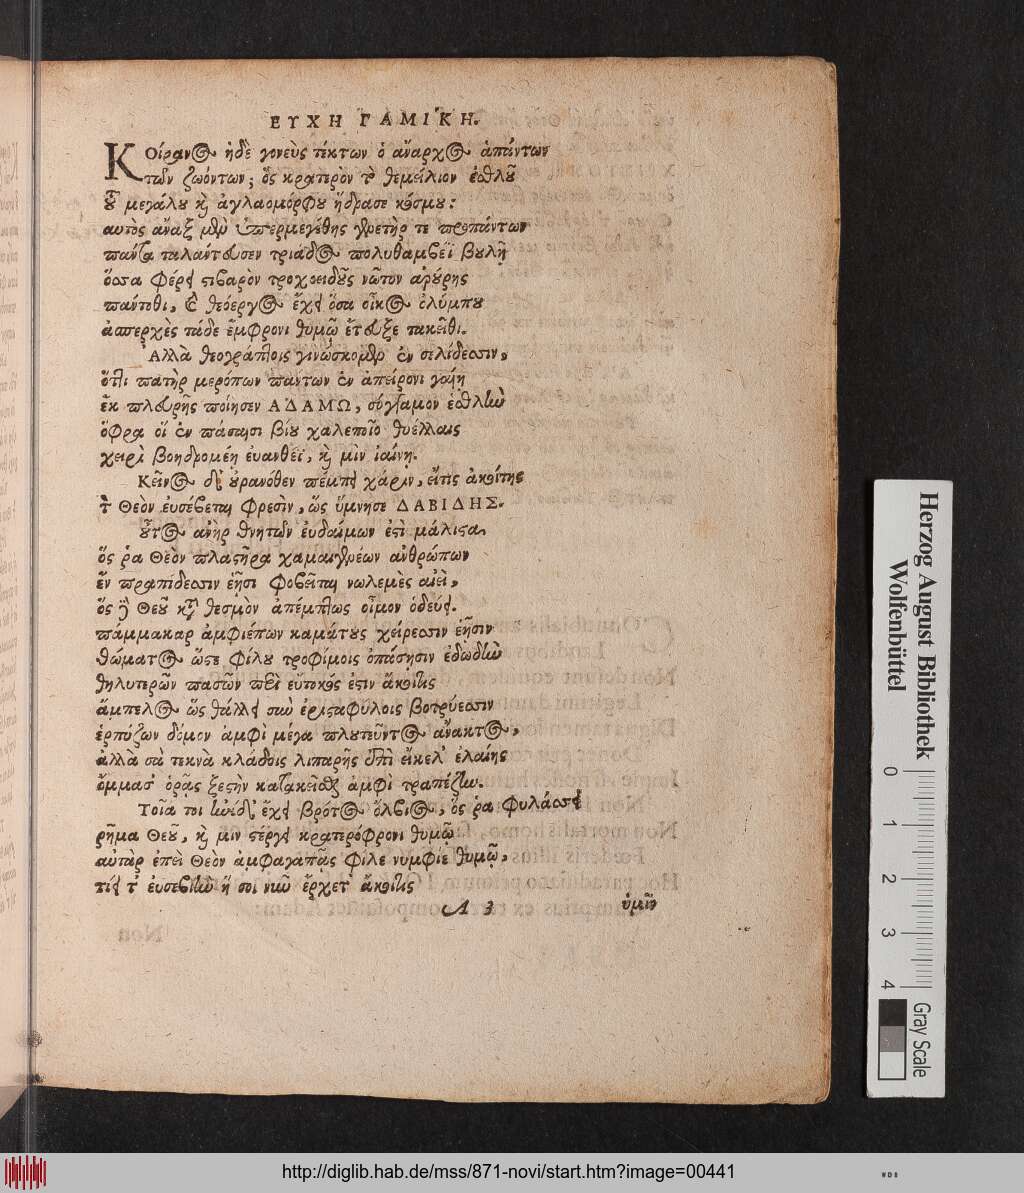 ΕΥΧΗ ΓΑΜΙΚΗ.
Κοίρανος ἠδὲ γονεὺς τέκτων ὁ ἄναρχος ἁπάντων
τῶν ζωόντων, ὃς κρατερὸν τὸ θεμείλιον ἐσθλοῦ
οὗ μεγάλου καὶ ἀγλαομόρφου ἥδρασε κόσμου:
αυτὸς ἄναξ μὲν ὑπερμεγέθης γενετὴρ τε προπάντων
πάντα ταλάντευσεν τριάδος πολυθαμβέϊ βουλῇ
ὅσσα φέρει στιβαρὸν τροχοειδοῦς νῶτον ἀρούρης
πάντοθι, καὶ θεόεργος ἔχει ὅσα οἶκος ὀλύμπου
ἀσπερχὲς τάδε ἔμφρονι θυμῷ ἔτευξε τακεῖθι.
Ἀλλὰ θεογράπτοις γινώσκομεν ἐν σελίδεσσιν,
ὅτι πατὴρ μερόπων πάντων ἐν ἀπείρονι γαίῃ
ἐκ πλευρῆς ποίησεν ΑΔΑΜΩ, σύγγαμον ἐσθλὴν
ὄφρα οἱ ἐν πάσῃσι βίου χαλεποῖο θυέλλαις
χειρὶ βοηδρομέῃ ἐυανθέϊ, καὶ μὶν ἰαίνῃ.
Κεῖνος δ' οὐρανόθεν πέμπει χάριν, εἴτις ἀκοίτης
τὸν Θεὸν ἐυσέβεται φρεσὶν, ὥς ὕμνησε ΔΑΒΙΔΗΣ.
οὗτος ἀνὴρ θνητῶν ἐυδαίμων ἐστὶ μάλιστα,
ὅς ῥα Θεὸν πλαστῆρα χαμαιγενέων ἀνθρώπων
ἓν πραπίδεσσιν ἑῇσι φοβεῖται νωλεμὲς αἰεὶ,
ὅς γε Θεοῦ κατὰ θεσμὸν ἀπέμπτως οἶμον ὁδεύει.
πάμμακαρ ἀμφιέπων καμάτους χείρεσσιν ἑῇσιν
θώματος ὥστε φίλου τροφίμοις ὀπάσῃσιν ἐδωδὴν
θηλυτερῶν πασῶν περὶ εὔτοκός ἐστιν ἄκοιτις
ἄμπελος ὡς θάλλει σὺν ἐριστaφύλοις βοτρύεσσιν
ἑρπύζων δόμον ἀμφὶ μέγα πλουτεῦντος ἄνακτος,
ἀλλὰ σὰ τεκνὰ κλάδοις λιπαρῆς ἐπὶ εἴκελ' ἐλαίης
ὄμμασ' ὁρᾷς ξεστὴν κατακεῖσθαι ἀμφὶ τραπέζην.
Τοῖα τοι ἠνίδ' ἔχει βρότος ὄλβιος, ὅς ῥα φυλάσσει
ρῆμα Θεοῦ, καὶ μιν στέργει κρατερόφρονι θυμῷ
αὐτὰρ ἐπεὶ Θεὸν ἀμφαγαπᾷς φίλε νυμφίε θυμῷ,
τίει τ' ἐυσεβίην ἥ σοι νῦν ἔρχετ' ἄκοιτις
A 3 ὑμῖν
Herzog August Bibliothek
Wolfenbüttel
0 1 2 3 4
Gray Scale
http://diglib.hab.de/mss/871-novi/start.htm?image=00441